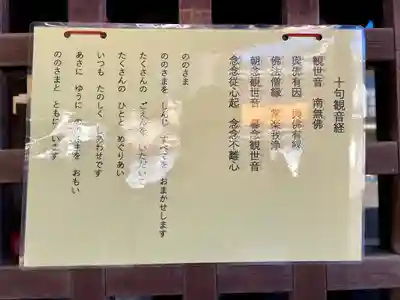 十句観音経
観世音 南無佛
與佛有因 與佛有縁
佛法僧縁 常楽我浄
朝念観世音 暮念観世音
念念従心起 念念不離心
ののさま
ののさまを しんじ すべてを おまかせします
たくさんの ごえんを いただいて
たくさんの ひとと めぐりあい
いつも たのしく しあわせです
あさに ゆうに ののさまを おもい
ののさまと ともに います